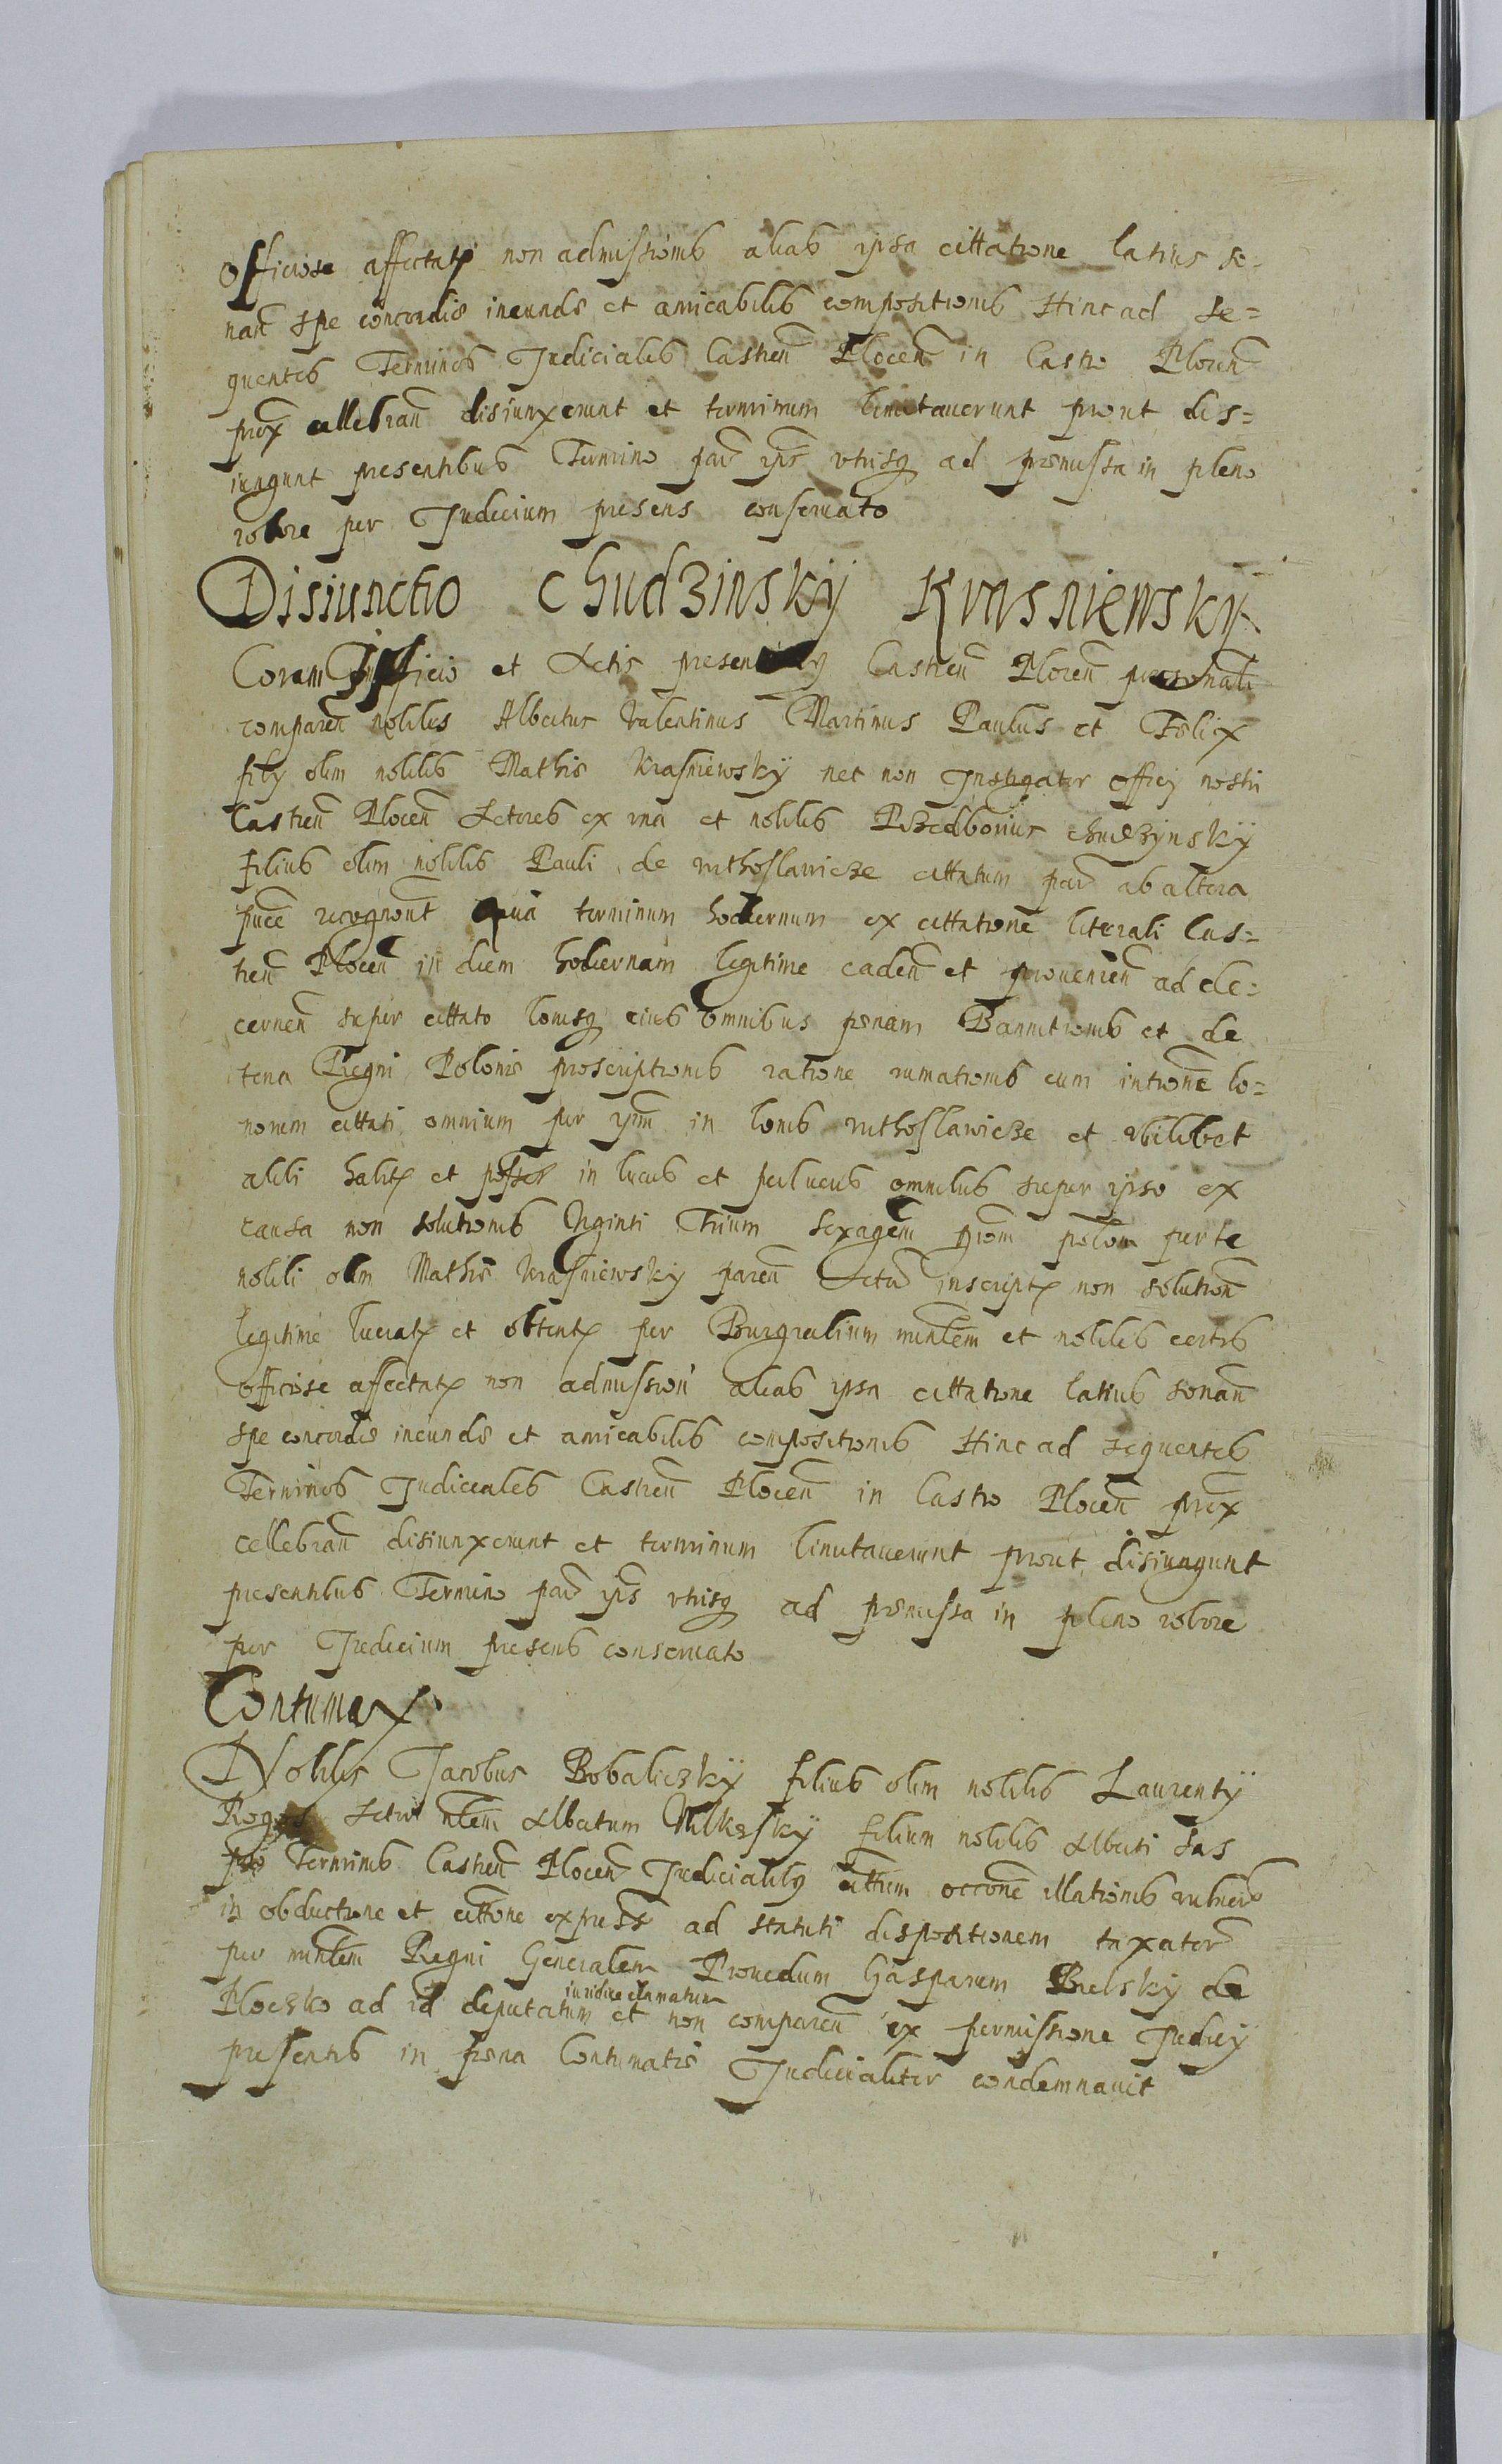 officiose affectatꝭ non admissionis alias ipsa cittatione latius so=
nan̄ spe concordiæ ineundæ et amicabilis compositionis Hinc ad se=
quentes Terminos Judiciales Castren̄ Plocen̄ in Castro Plocen̄
prox cellebran̄ disiunxerunt et terminum limitauerunt prout dis=
iungunt presentibus Termino par̄ ip̄is vtrisq ad præmissa in pleno
robore per Judicium presens conseruato
Disiunctio Chudzinskÿ Krasniewskÿ
Coram Officio et Actis presentibq Castren̄ Plocen̄ personali
comparen̄ nobiles Albertus Valentinus Martinus Paulus et Felix
filÿ olim nobilis Mathiæ Krasniewskÿ nec non Instigator officÿ nostri
Castren̄ Plocen̄ Actores ex vna et nobilis Przedborius Chudzÿnskÿ
filius olim nobilis Pauli de mthoslawicze cittatum par̄ ab altera
recognouer̄t Quia terminum hodiernum ex cittatione literali Cas=
tren̄ Plocen̄ in diem hodiernam legitime caden̄ et prouenien̄ ad de=
cernen̄ super cittato bonisq eius omnibus pœnam Bannitionis et de
terra Regni Poloniæ proscriptionis ratione rumationis cum intromi bo=
norum cittati omnium per ip̄m in bonis mthoslawicze et vbilibet
alibi habitꝭ et possess in lucris et perlucris omnibus super ipso ex
causa non solutionis Viginti Trium sexagen̄ grom̄ polon̄ per te
nobili olim Mathiæ Krasniewskÿ paren̄ Actor̄ inscriptꝭ non solution̄
legitime lucratꝭ et obtentꝭ per Burgrabium min̄lem et nobiles certos
officiose affectatꝭ non admission̄ alias ipsa cittatione latius sonan̄
spe concordiæ ineundæ et amicabilis compositionis Hinc ad sequentes
Terminos Judiciales Castren̄ Plocen̄ in Castro Plocen̄ prox
cellebran̄ disiunxerunt et terminum limitauerunt prout disiungunt
presentibus Termino par̄ ip̄is vtrisq ad præmissa in pleno robore
per Judicium presens conseruato
Contumax
Nobilis Jacobus Bobaliczkÿ filius olim nobilis Laurentÿ
Roga Actor nb̄lem Albertum filium nobilis Alberti
pro Terminis Castren̄ Plocen̄ Judicialibq citt̄um occ̄one illationis vulner̄
in obductione et citt̄one express ad statuti dispositionem taxator̄
per min̄lem Regni Generalem Prouidum Gasparum Bielskÿ de
Ploczko ad id deputatum juridice clamatum et non comparen̄ ex permissione Judicÿ
presentis in pœna Contumatiæ Judicialiter condemnauit